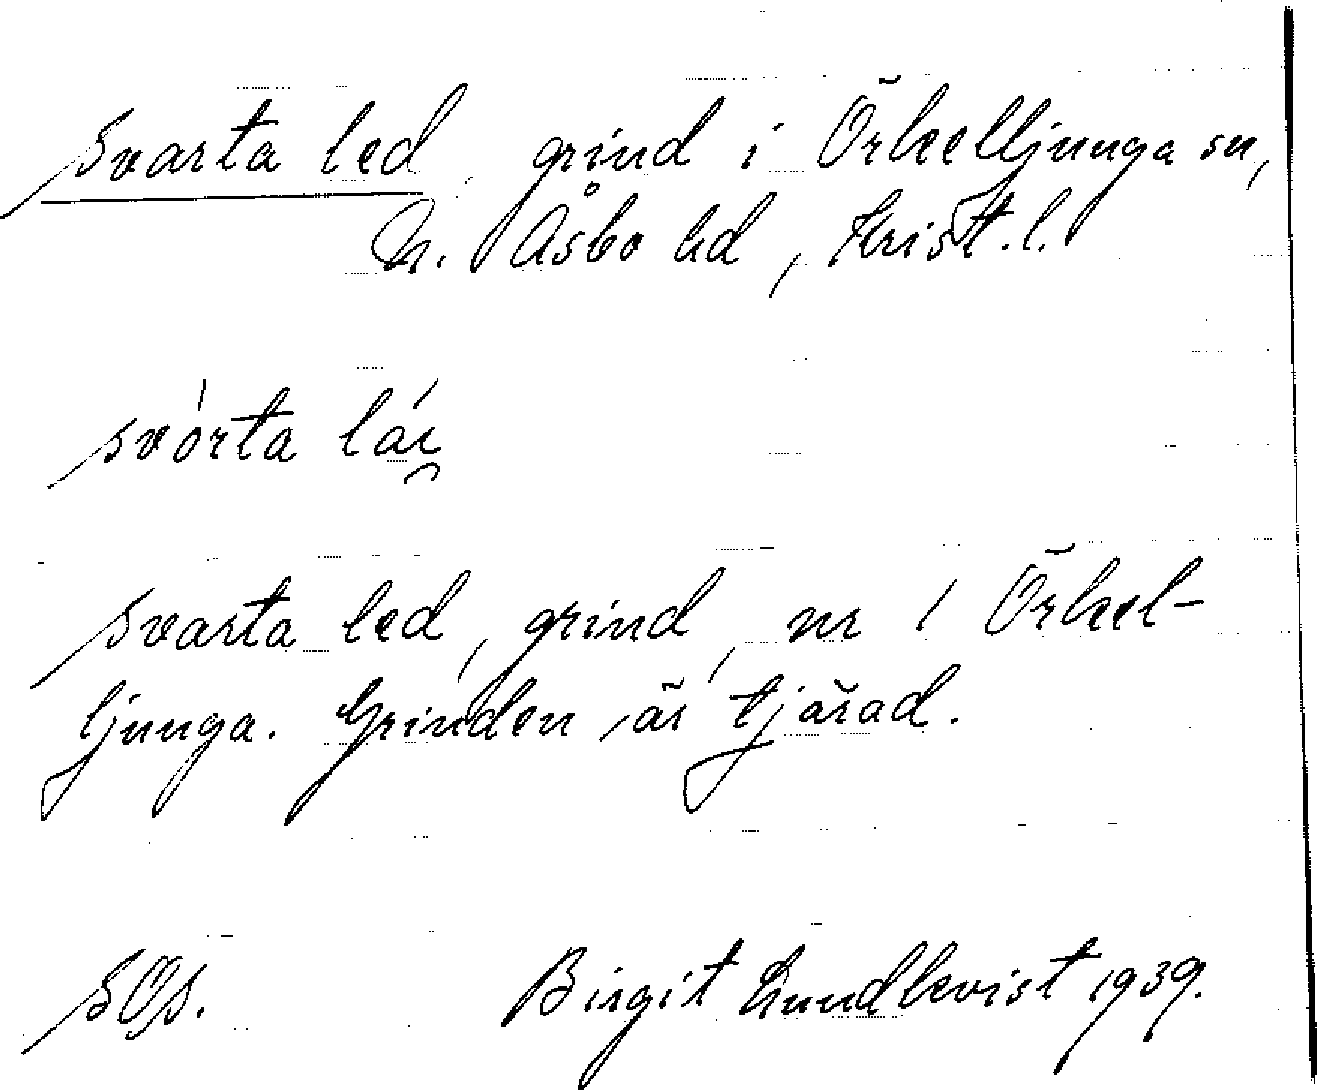 Svarta led, grind i Örkelljunga sn,
N. Åsbo hd, Krist. l.
svórta lái̯
Svarta led, grind, nr 1 Örkel-
ljunga. Grinden är tjärad.
SOJ. Birgit Lundkvist 1939.